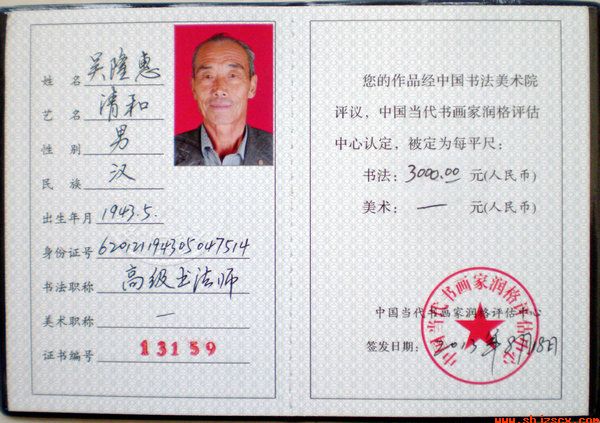 姓 名 吴隆惠
艺 名 清和
性 别 男
民 族 汉
出生年月 1943.5.
身份证号 620121194305047514
书法职称 高级书法师
美术职称 一
证书编号 13159
您的作品经中国书法美术院
评议，中国当代书画家润格评估
中心认定，被定为每平尺：
书法：3000.00 元(人民币)
美术：一 元(人民币)
中国当代书画家润格评估中心
中国当代书画家润格评估中心
签发日期：2013年8月18日
www.shjzscx.com